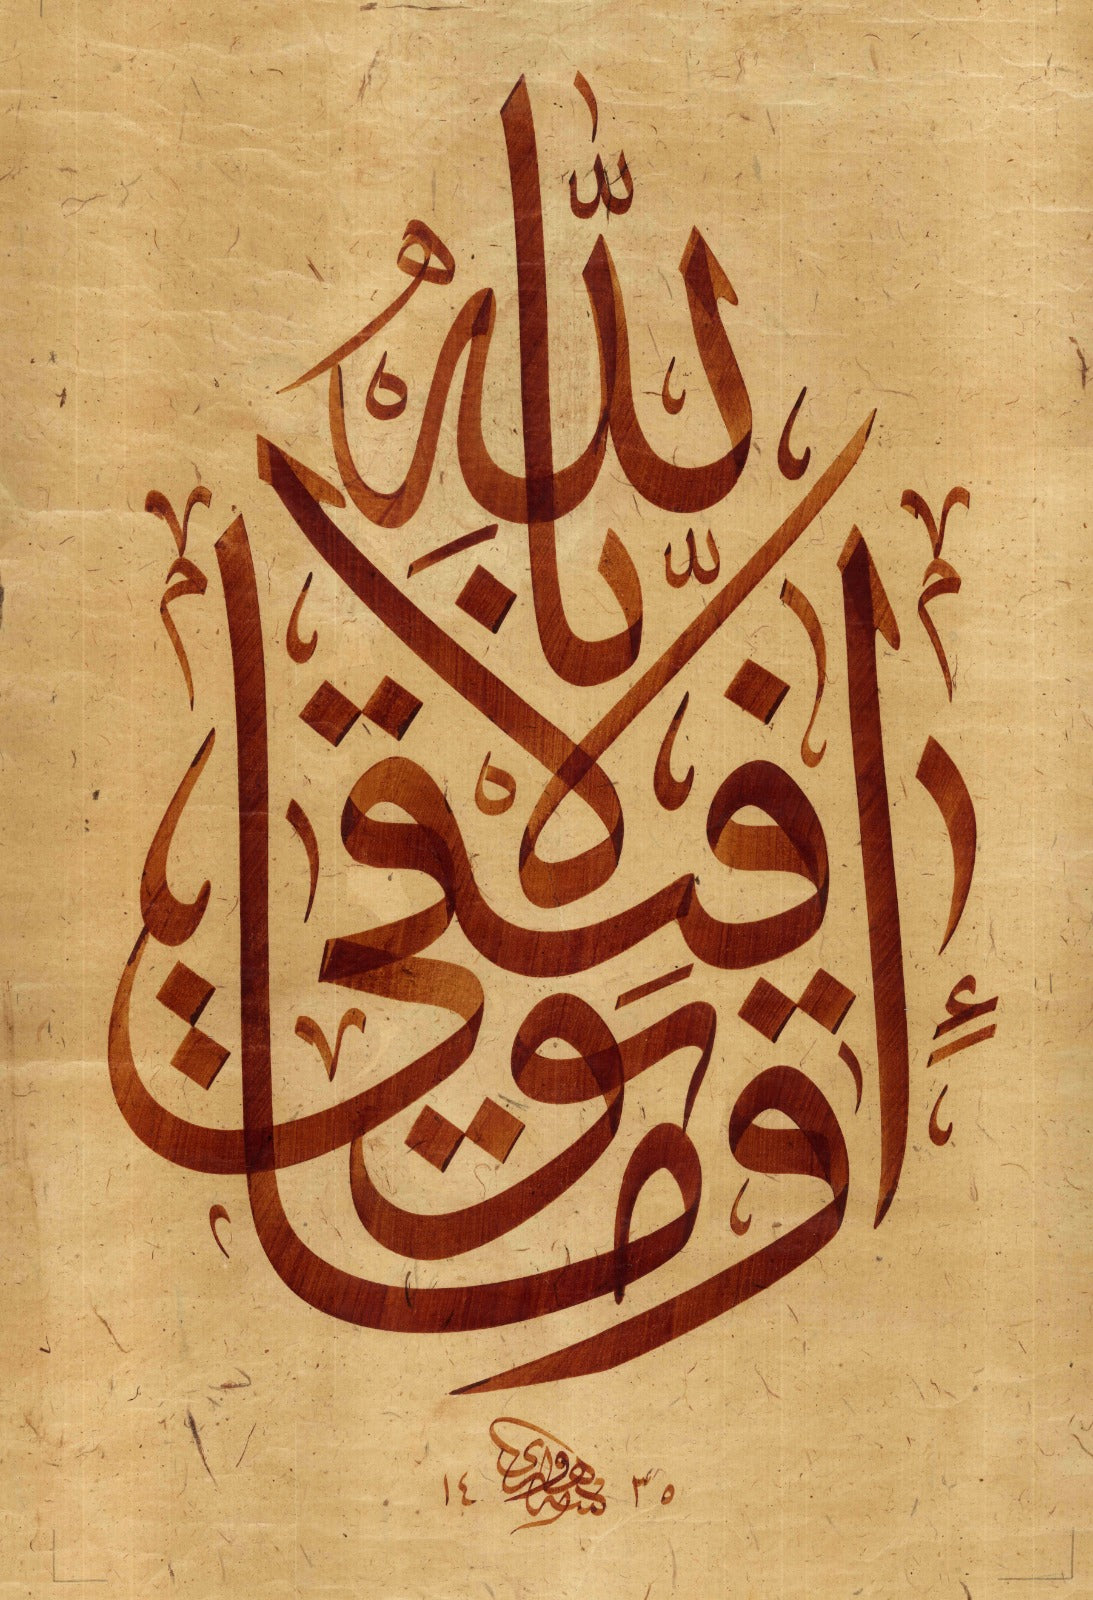 وَمَا تَوْفِيقِي إِلَّا بِاللَّهِ
١٤٣٥